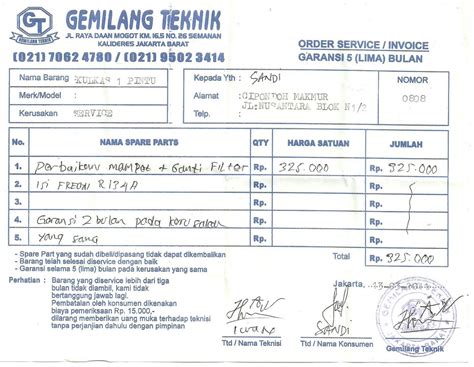 GT
GEMILANG TEKNIK
GEMILANG TEKNIK
JL. RAYA DAAN MOGOT KM. 16,5 NO. 26 SEMANAN
KALIDERES JAKARTA BARAT
(021) 7062 4780 / (021) 9502 3414
ORDER SERVICE / INVOICE
GARANSI 5 (LIMA) BULAN
Nama Barang KULKAS 1 PINTU
Merk/Model :
Kerusakan SERVICE
Kepada Yth : SANDI
Alamat : CIPONDOH MAKMUR
JL. NUSANTARA BLOK N 1/2
Telp. :
NOMOR
0808
No. NAMA SPARE PARTS QTY HARGA SATUAN JUMLAH
1. Perbaikan mampat + Ganti Filter Rp. 325.000 Rp. 325.000
2. ISI FREON R134A Rp. Rp.
3. Rp. Rp.
4. Garansi 2 bulan pada kerusakan Rp. Rp.
5. yang sama Rp. Rp.
- Spare Part yang sudah dibeli/dipasang tidak dapat dikembalikan
- Barang telah selesai diservice dengan baik
- Garansi selama 5 (lima) bulan pada kerusakan yang sama
TOTAL Rp. 325.000
Perhatian : Barang yang diservice lebih dari tiga
bulan tidak diambil, kami tidak
bertanggung jawab lagi.
Pembatalan oleh konsumen dikenakan
biaya pemeriksaan Rp. 15.000,-
dilarang memberikan uang muka terhadap teknisi
tanpa perjanjian dahulu dengan pimpinan
Jakarta,
Iwan
Ttd / Nama Teknisi
SANDI
Ttd / Nama Konsumen
Gemilang Teknik